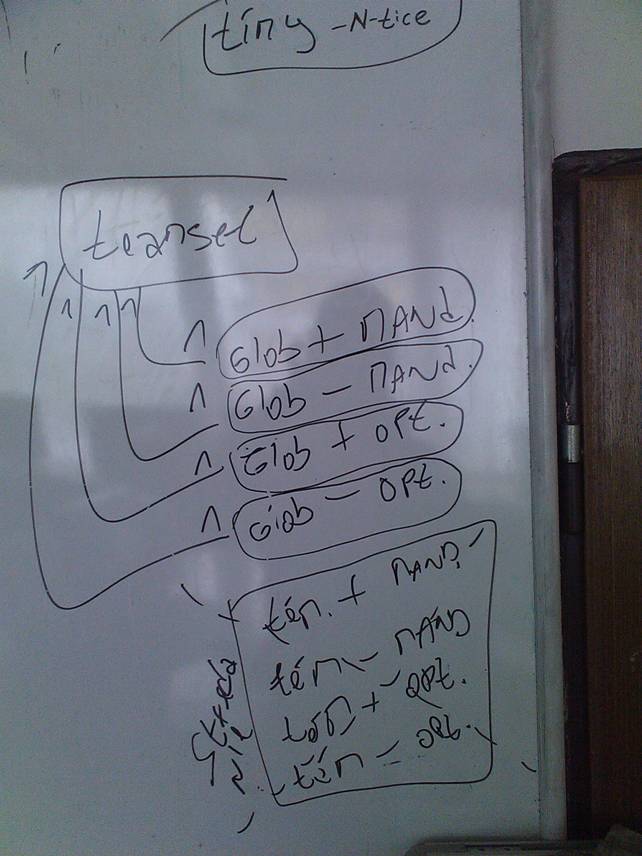 tiny -N-tice
teansel
1 1 1 1
1 Glob + MANd.
1 Glob - MANd.
1 Glob + OPt.
1 Glob - OPt.
tém. + MAND.
tém - MAND
tém + OPt.
tém - OPt.